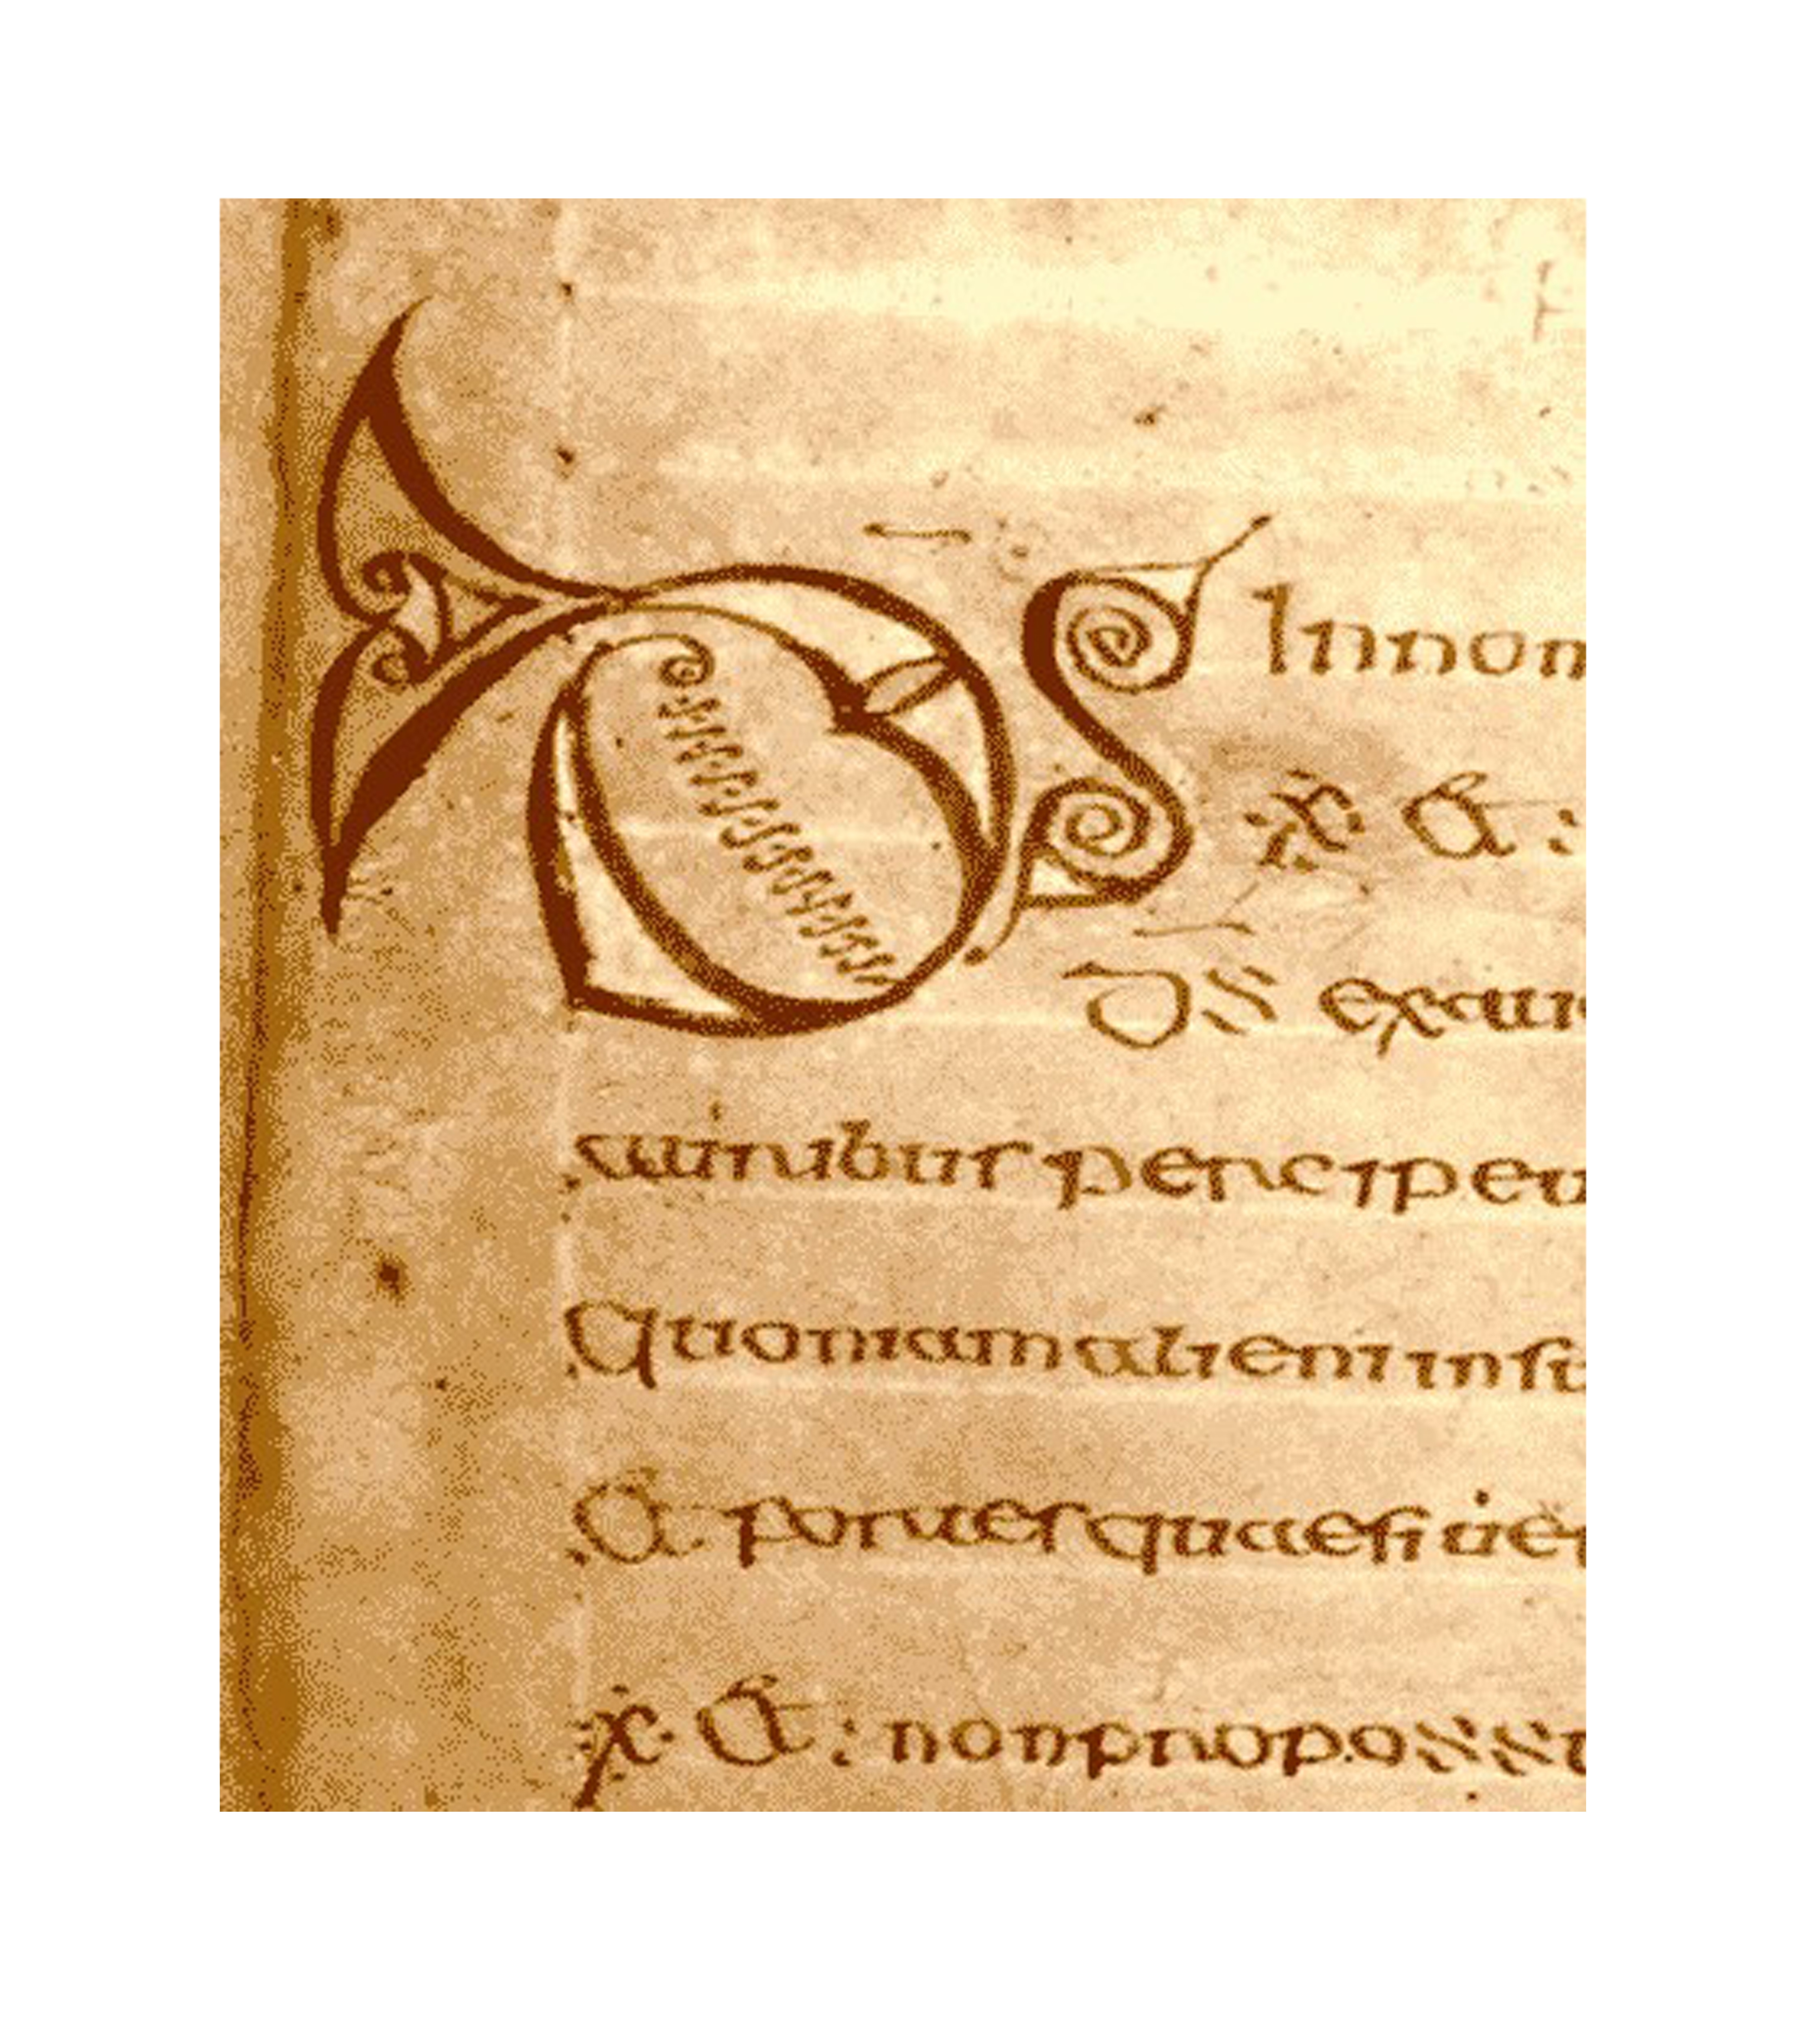 DS In nom
※ & :
DS exau
auribus percipe u
Quoniam alieni insu
& fortes quaesiue
※ & : non propossu